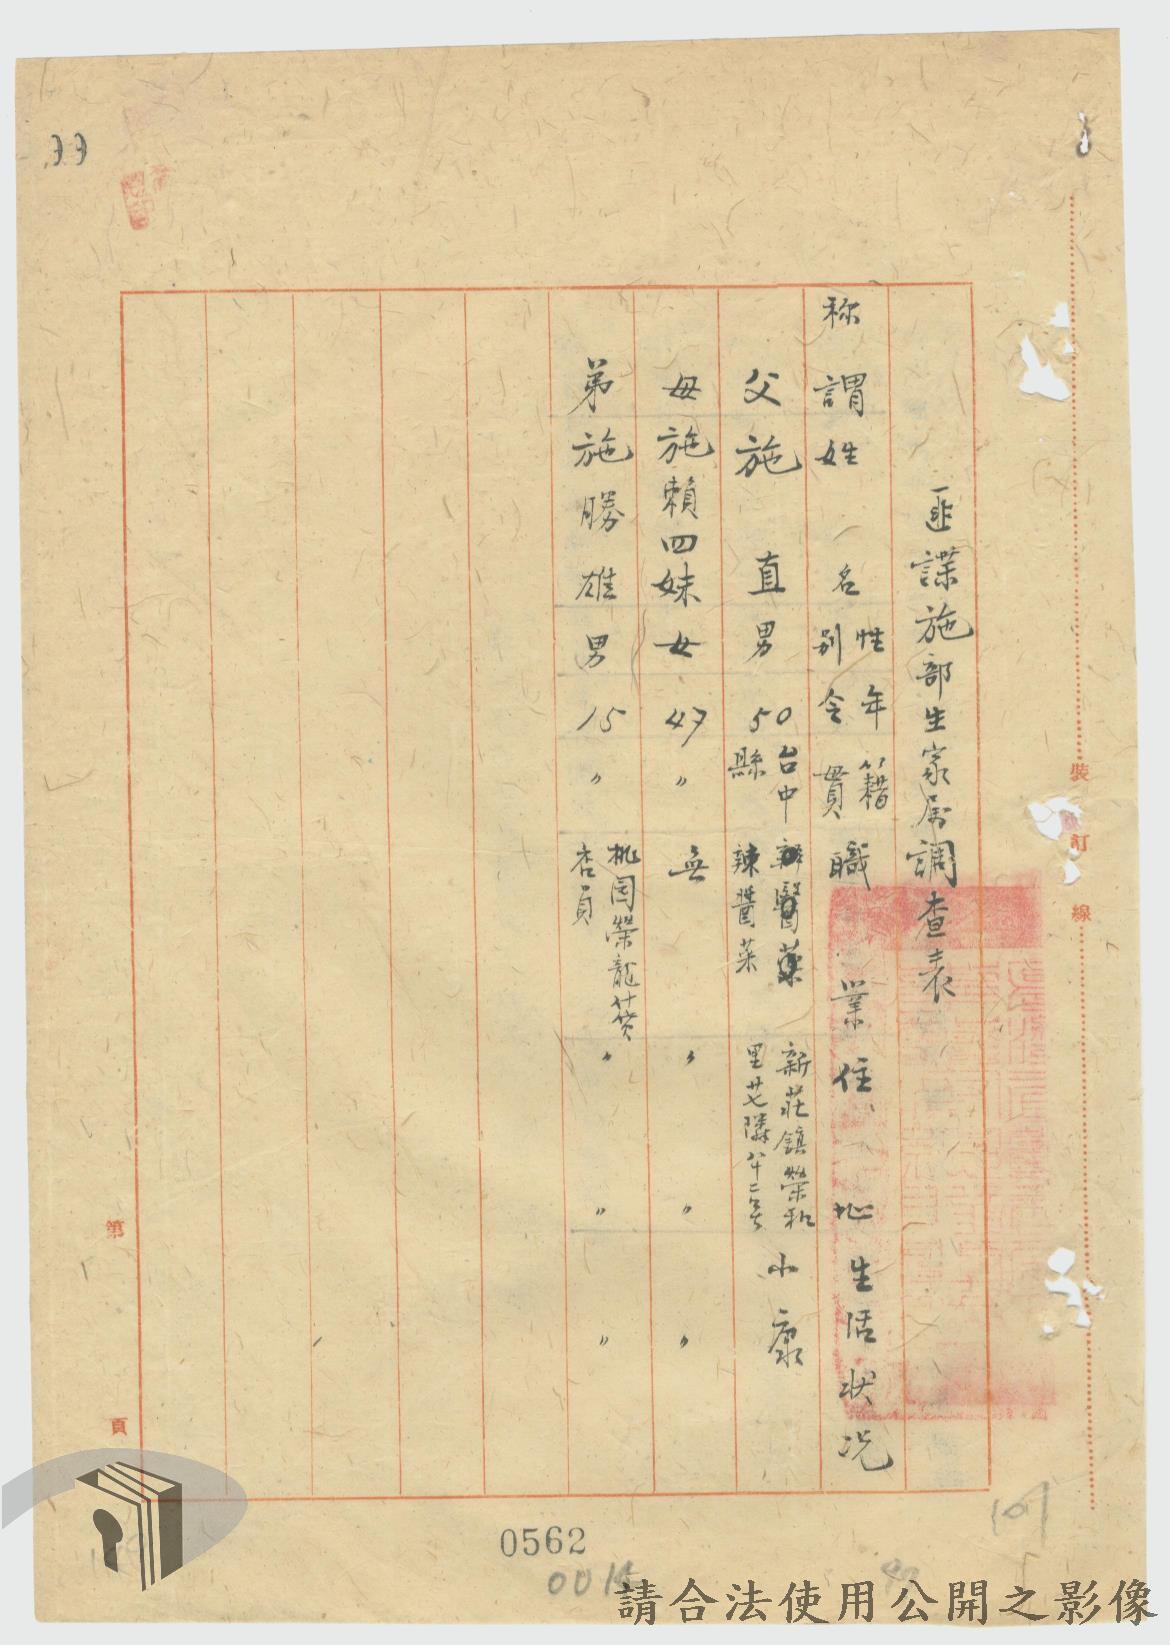 匪諜施部生家屬調查表
称謂姓名性別年令籍貫職業住址生活狀況
父施直男50台中縣辣醬菜新莊鎮榮和里廿七隣八十二號小康
母施賴四妹女47〃無〃〃〃
弟施勝雄男15〃桃园榮龍〃〃〃
裝訂線
第頁
0562
0015
請合法使用公開之影像